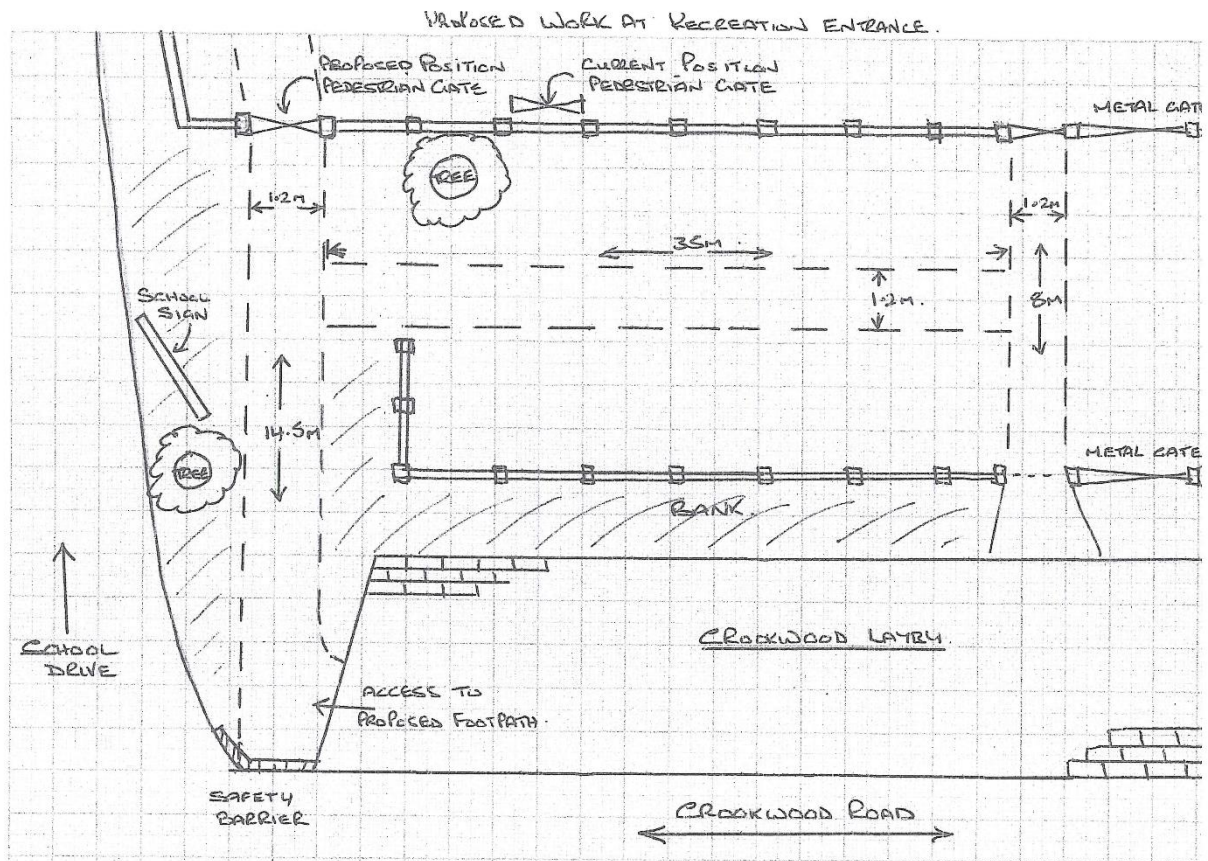 PROPOSED WORK AT RECREATION ENTRANCE.
PROPOSED POSITION
PEDESTRIAN GATE
CURRENT POSITION
PEDESTRIAN GATE
METAL GATE
TREE
1.2M
1.2M
35M
1.2M.
8M
SCHOOL
SIGN
14.5M
TREE
METAL GATE
BANK.
SCHOOL
DRIVE
CROOKWOOD LAYBY.
ACCESS TO
PROPOSED FOOTPATH.
SAFETY
BARRIER
CROOKWOOD ROAD